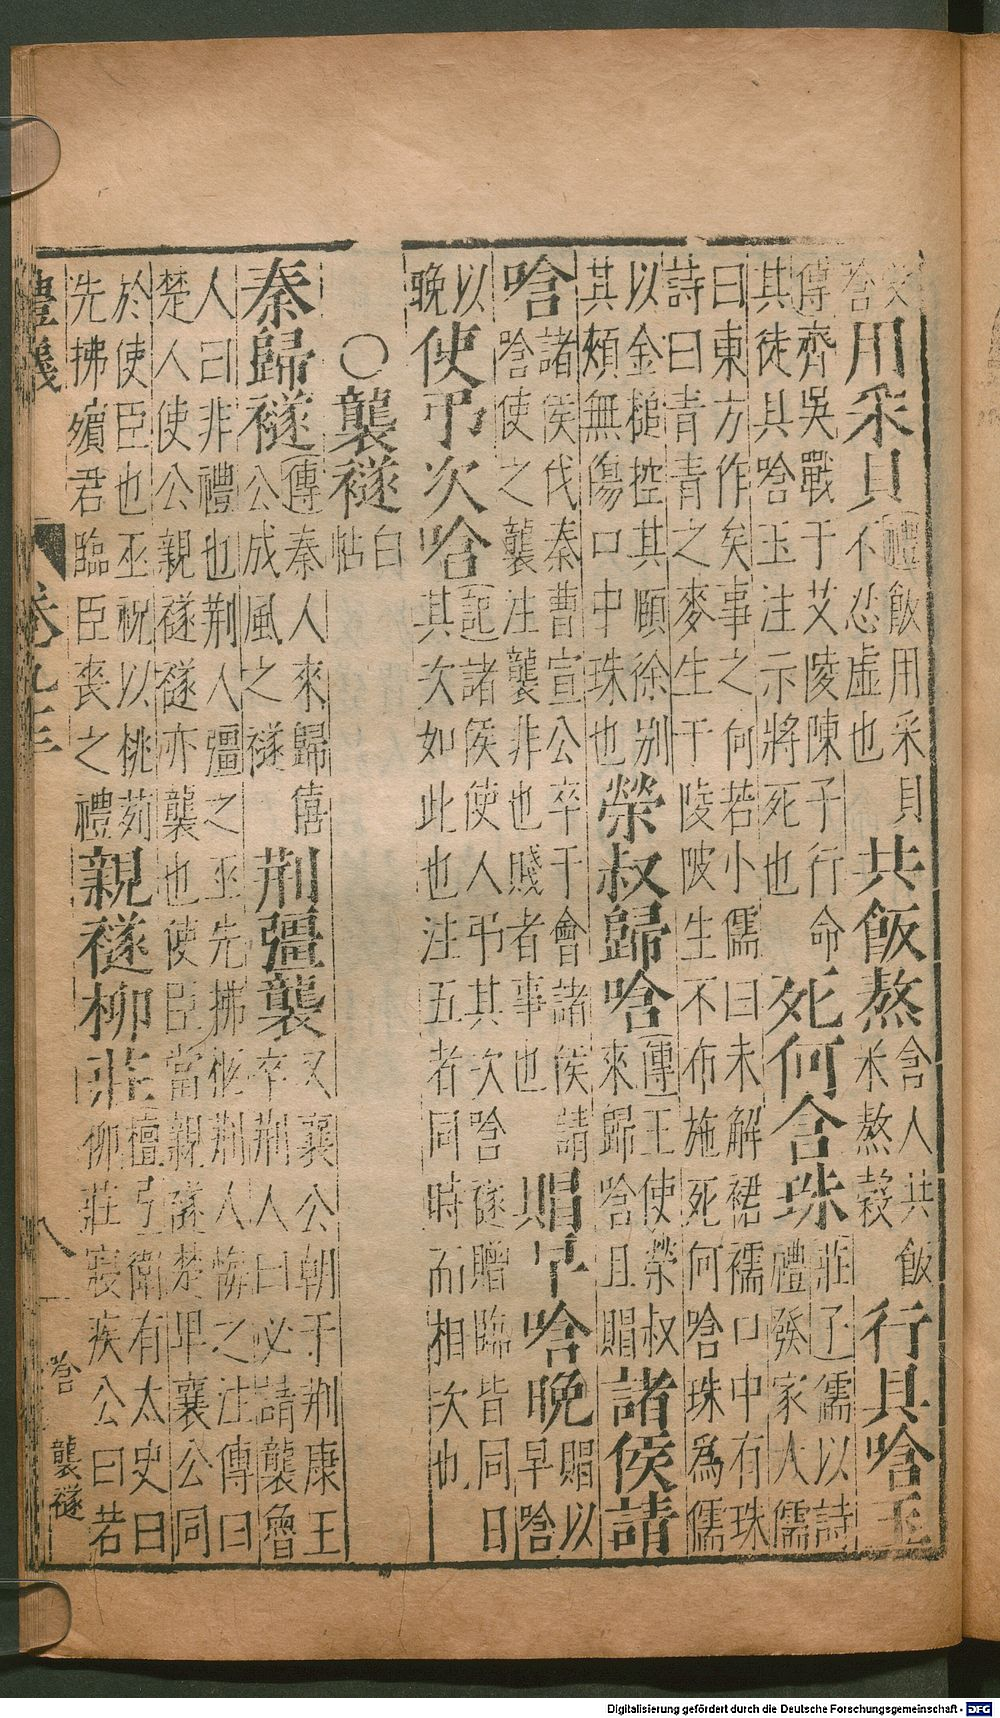 含用采貝禮飯用采貝不忍虛也共飯熬含人共飯米熬穀行具啥玉
傳齊吳戰于艾陵陳子行命其徒具啥玉注示將死也死何含珠莊子儒以詩禮發冢大儒
曰東方作矣事之何若小儒曰未解裙襦口中有珠詩曰青青之麥生于陵陂生不布施死何啥珠為儒
以金槌控其頤徐别其頰無傷口中珠也榮叔歸啥傳王使榮叔來歸啥且賵諸侯請
啥諸侯伐秦曹宣公卒于會諸侯請啥使之襲注襲非也賤者事也賵早啥晚賵以早啥
以晚使弔次啥記諸侯使人弔其次啥襚賵臨皆同日其次如此也注五者同時而相次也
○襲襚白帖
秦歸襚傳秦人來歸僖公成風之襚荆彊襲又襄公朝于荆康王卒荆人曰必請襲魯
人曰非禮也荆人彊之巫先拂柩荆人悔之注傳曰楚人使公親襚襚亦襲也使臣當親襚楚卑襄公同
於使臣也巫祝以桃茢先拂殯君臨臣喪之禮親襚柳莊檀弓衛有太史曰柳莊寢疾公曰若
禮儀 卷九十三 八 啥 襲襚
Digitalisierung gefördert durch die Deutsche Forschungsgemeinschaft - DFG